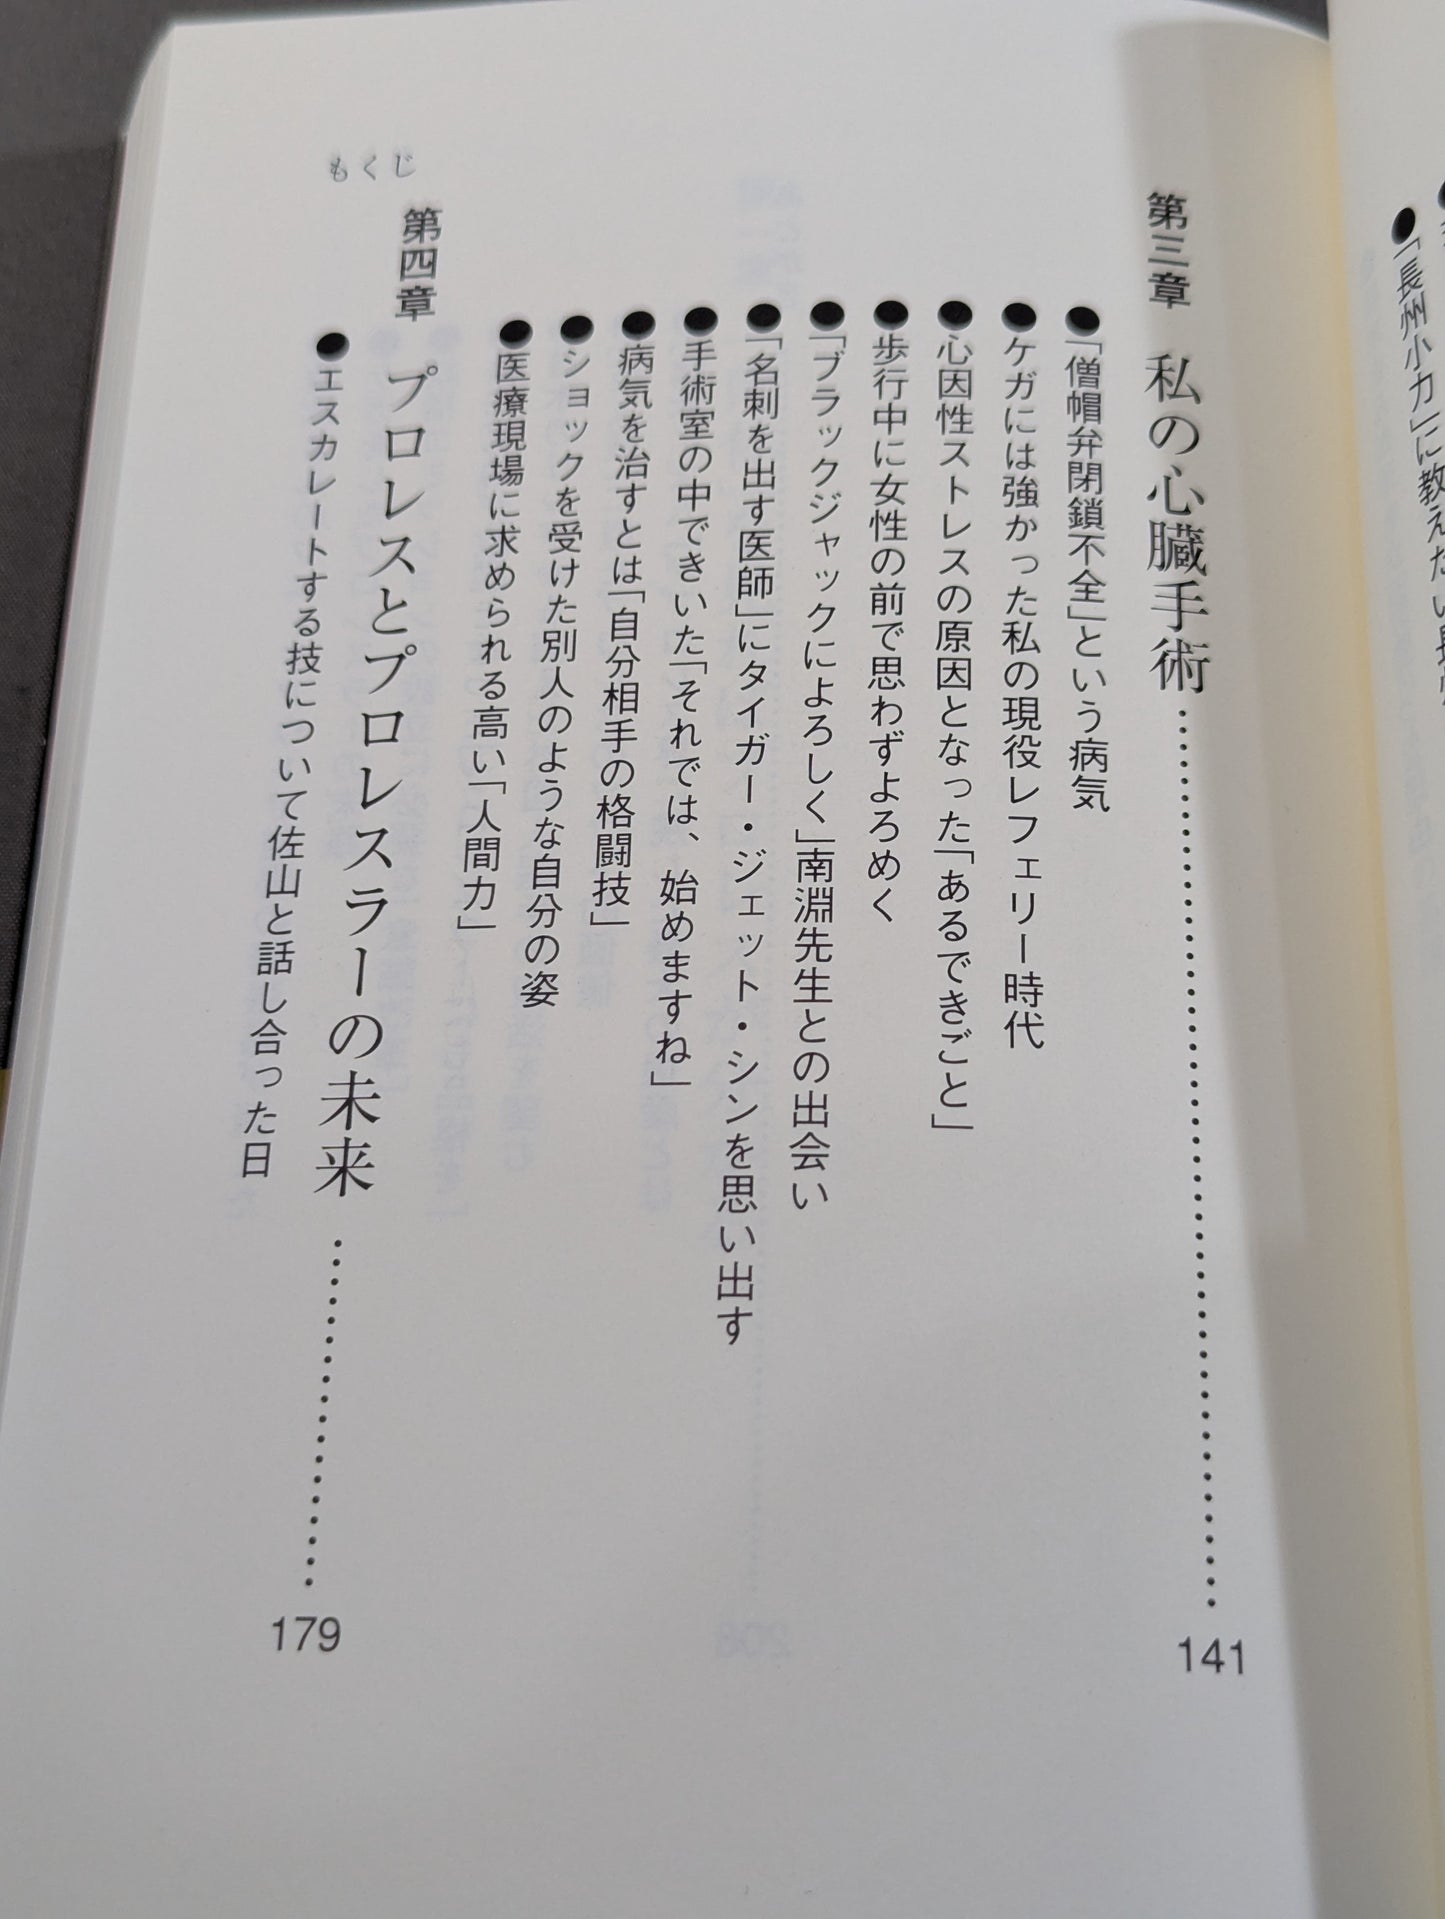 ●「長州小力」に教えたい長
第三章　私の心臓手術……………………141
●「僧帽弁閉鎖不全」という病気
●ケガには強かった私の現役レフェリー時代
●心因性ストレスの原因となった「あるできごと」
●歩行中に女性の前で思わずよろめく
●「ブラックジャックによろしく」南淵先生との出会い
●「名刺を出す医師」にタイガー・ジェット・シンを思い出す
●手術室の中できいた「それでは、始めますね」
●病気を治すとは「自分相手の格闘技」
●ショックを受けた別人のような自分の姿
●医療現場に求められる高い「人間力」
第四章　プロレスとプロレスラーの未来……………179
●エスカレートする技について佐山と話し合った日
もくじ